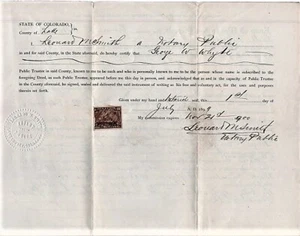 STATE OF COLORADO,
County of Lake
Leonard McSmith a Notary Public
in and for said County, in the State aforesaid, do hereby certify that George W.
Public Trustee in said County, known to me to be such and who is personally known to me to be the person whose name is subscribed to the
foregoing Deed, as such Public Trustee, appeared before me this day in person, and acknowledged that as and in the capacity of Public Trustee
in the County aforesaid, he signed, sealed and delivered the said instrument of writing as his free and voluntary act, for the uses and purposes
therein set forth.
Given under my hand and Notarial seal, this 1st day of
July
My commission expires Nov 21st 1900
Leonard McSmith
Notary Public